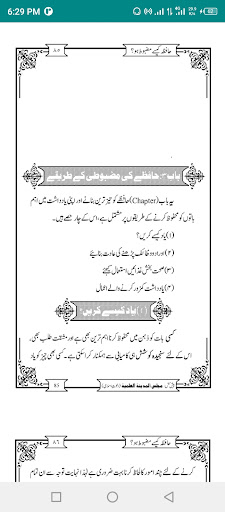 6:29 PM
حافظہ کیسے مضبوط ہو؟
۸۵
باب ۳: حافظے کی مضبوطی کے طریقے
یہ باب (Chapter) حافظے کو تیز ترین بنانے اور اپنی یادداشت میں اہم
باتوں کو محفوظ کرنے کے طریقوں پر مشتمل ہے، اس کے چار حصے ہیں۔
(۱) یاد کیسے کریں؟
(۲) اوراد و وظائف پڑھنے کی عادت بنائیے
(۳) صحت بخش غذائیں استعمال کیجئے
(۴) یادداشت کمزور کرنے والے افعال
(۱) یاد کیسے کریں؟
کسی بات کو ذہن میں محفوظ کرنا اہم ترین بھی ہے اور مشقت طلب بھی،
اس کے لئے سنجیدہ کوشش ہی کامیابی سے ہمکنار کر سکتی ہے۔ کسی بھی چیز کو یاد
مجلس المدینۃ العلمیۃ
85
حافظہ کیسے مضبوط ہو؟
۸۶
کرنے کے لئے چند امور کا لحاظ کرنا بہت ضروری ہے لہٰذا نہایت توجہ سے ان تمام